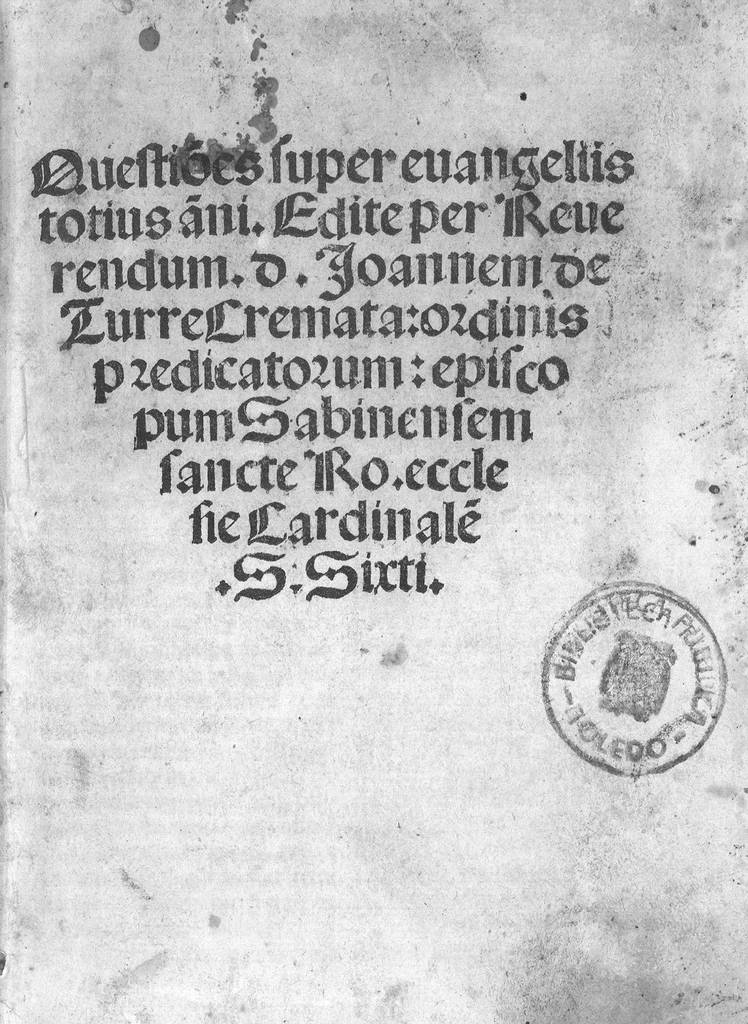 Questiões super euangeliis
totius āni. Edite per Reue
rendum. d. Joannem de
Turre Cremata: ordinis
predicatorum: episco
pum Sabinensem
sancte Ro. eccle
sie Cardinalē
.S. Sixti.
BIBLIOTECA PUBLICA
- TOLEDO -